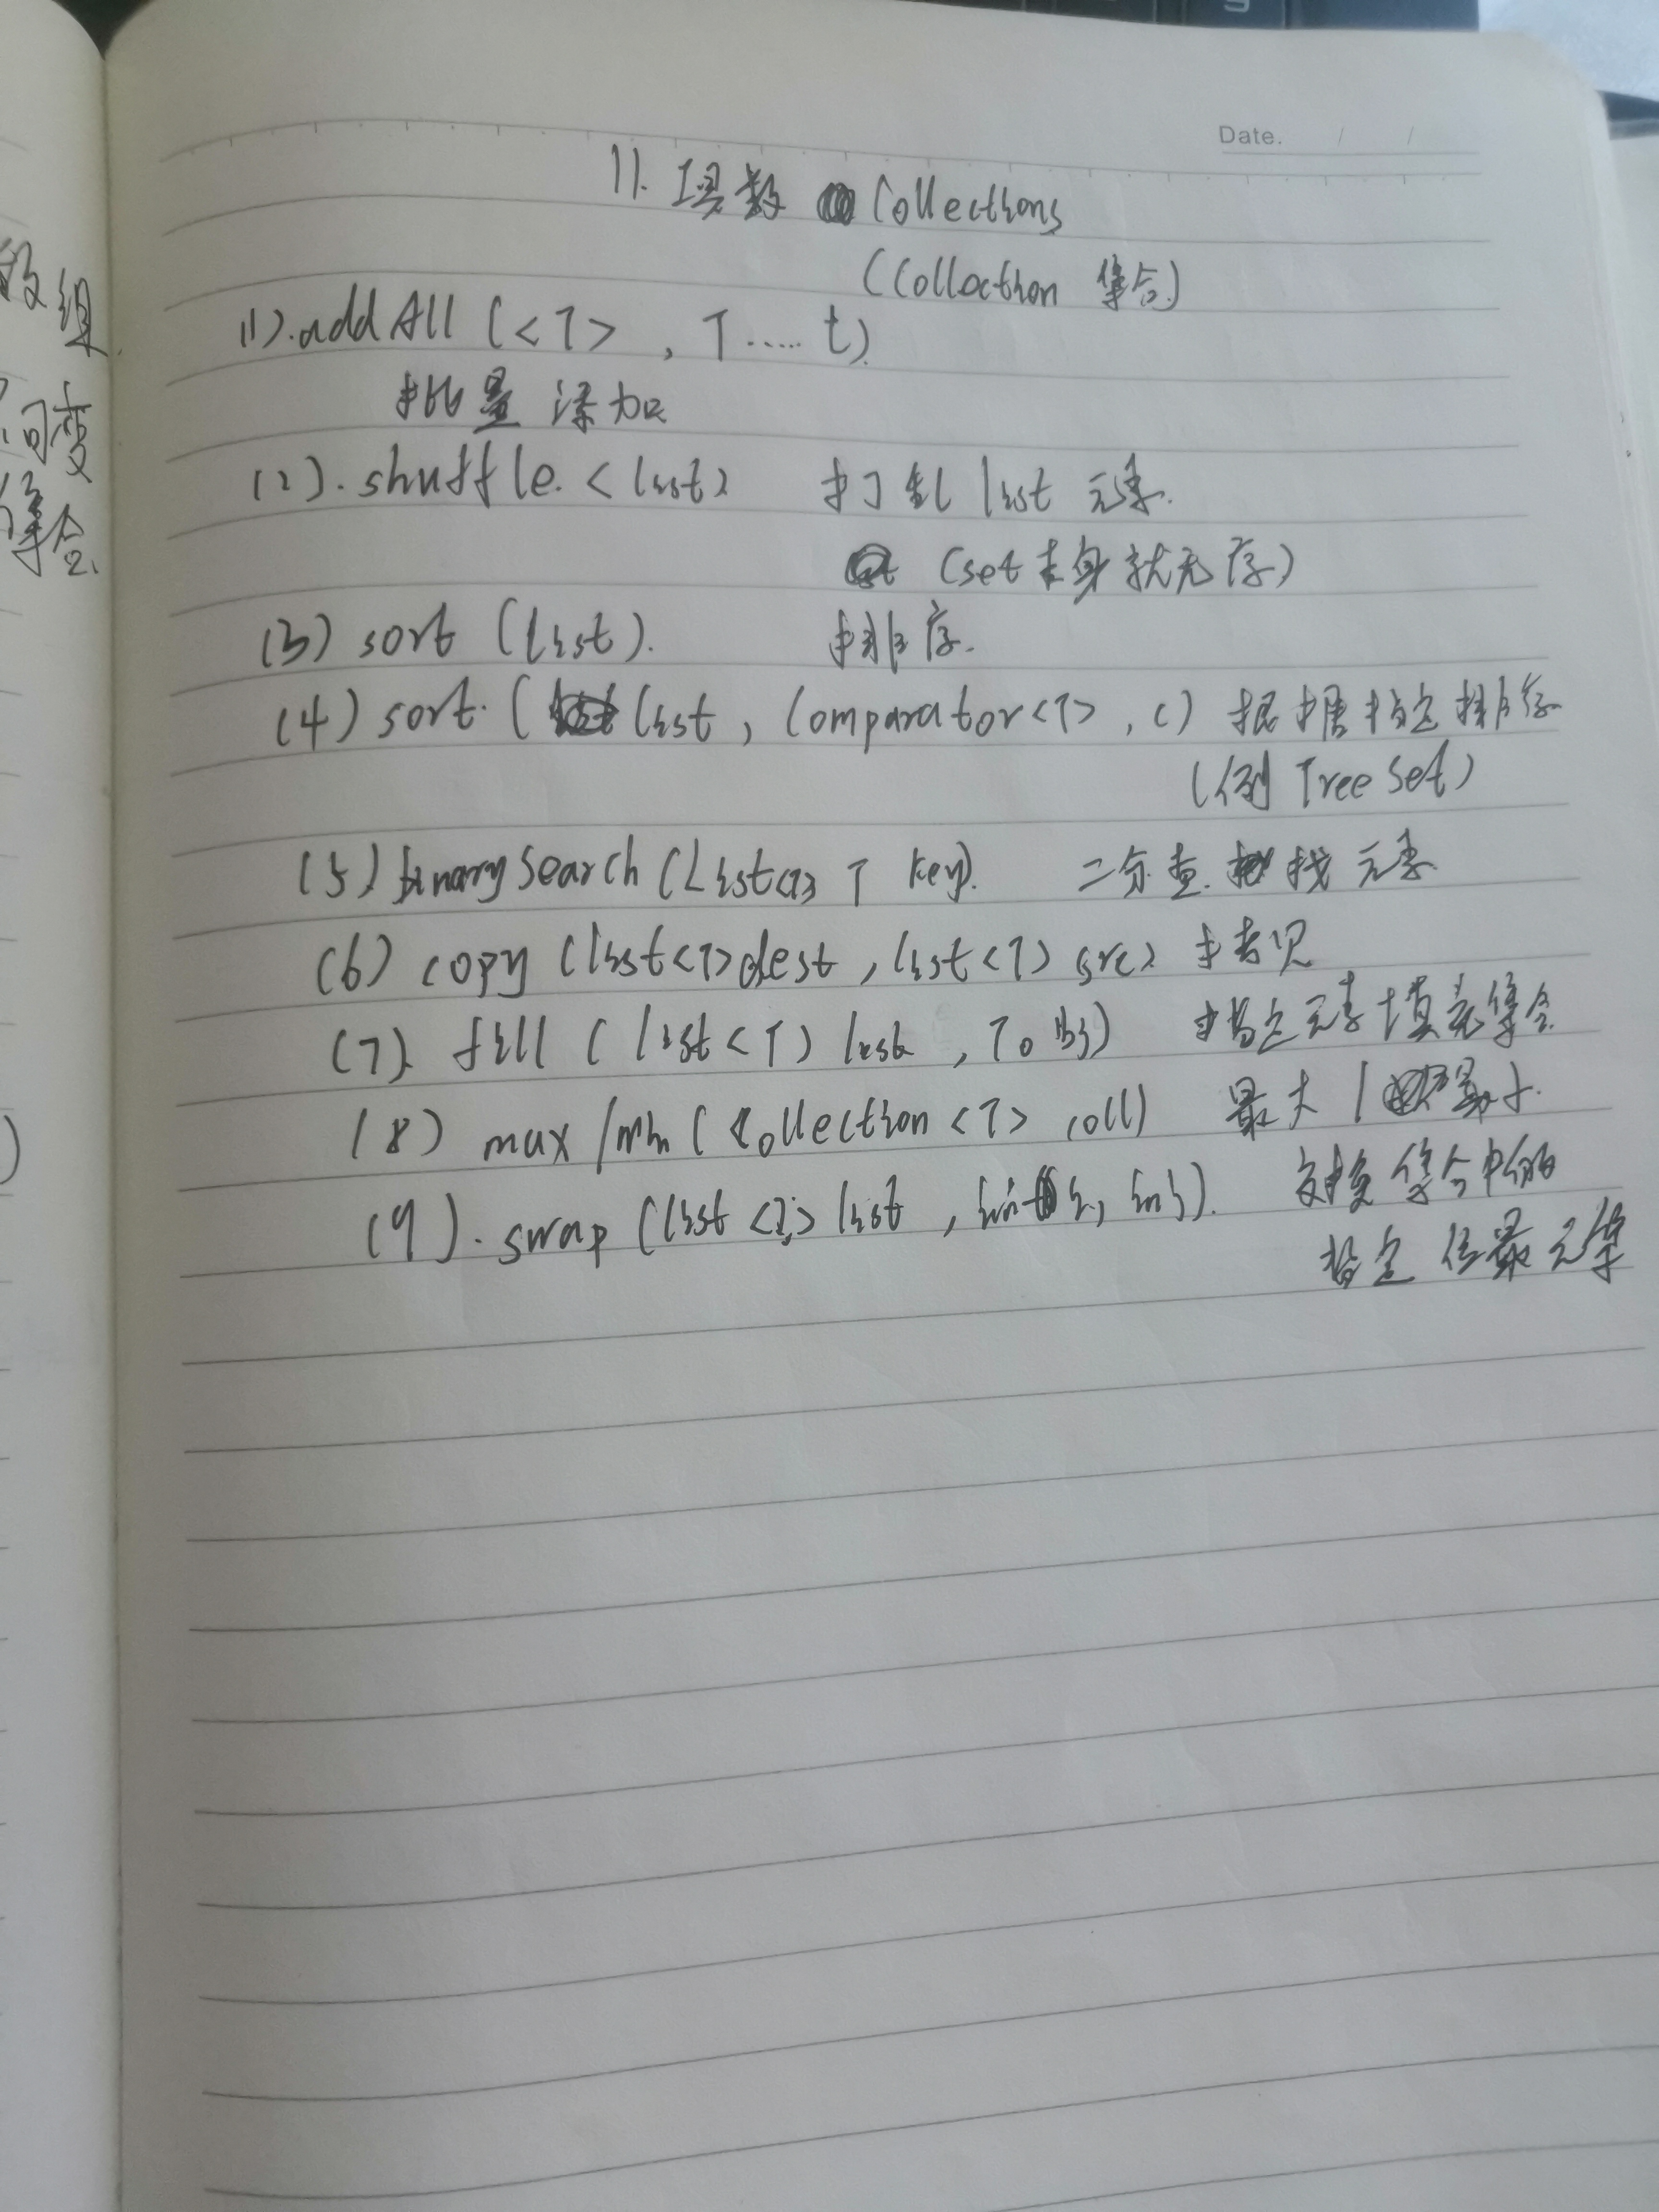 段组
间变
集合
Date. / /
11. 项数 Collections
(Collection 集合)
(1).addAll (<T> , T..... t)
批量添加
(2).shuffle.<list> 打乱list元素.
(set本身就无序)
(3) sort (list). 排序.
(4) sort.( list , Comparator<T> , c) 根据指定排序
(例 TreeSet)
(5) binarySearch (List<T> T key). 二分查找元素
(6) copy (list<T>dest , list<T> src) 拷贝
(7). fill ( list<T> list , T obj) 指定元素填充集合
(8) max /min ( Collection <T> coll) 最大 / 最小.
(9). swap (list <?> list , int i, int j). 交换集合中的
指定位置元素